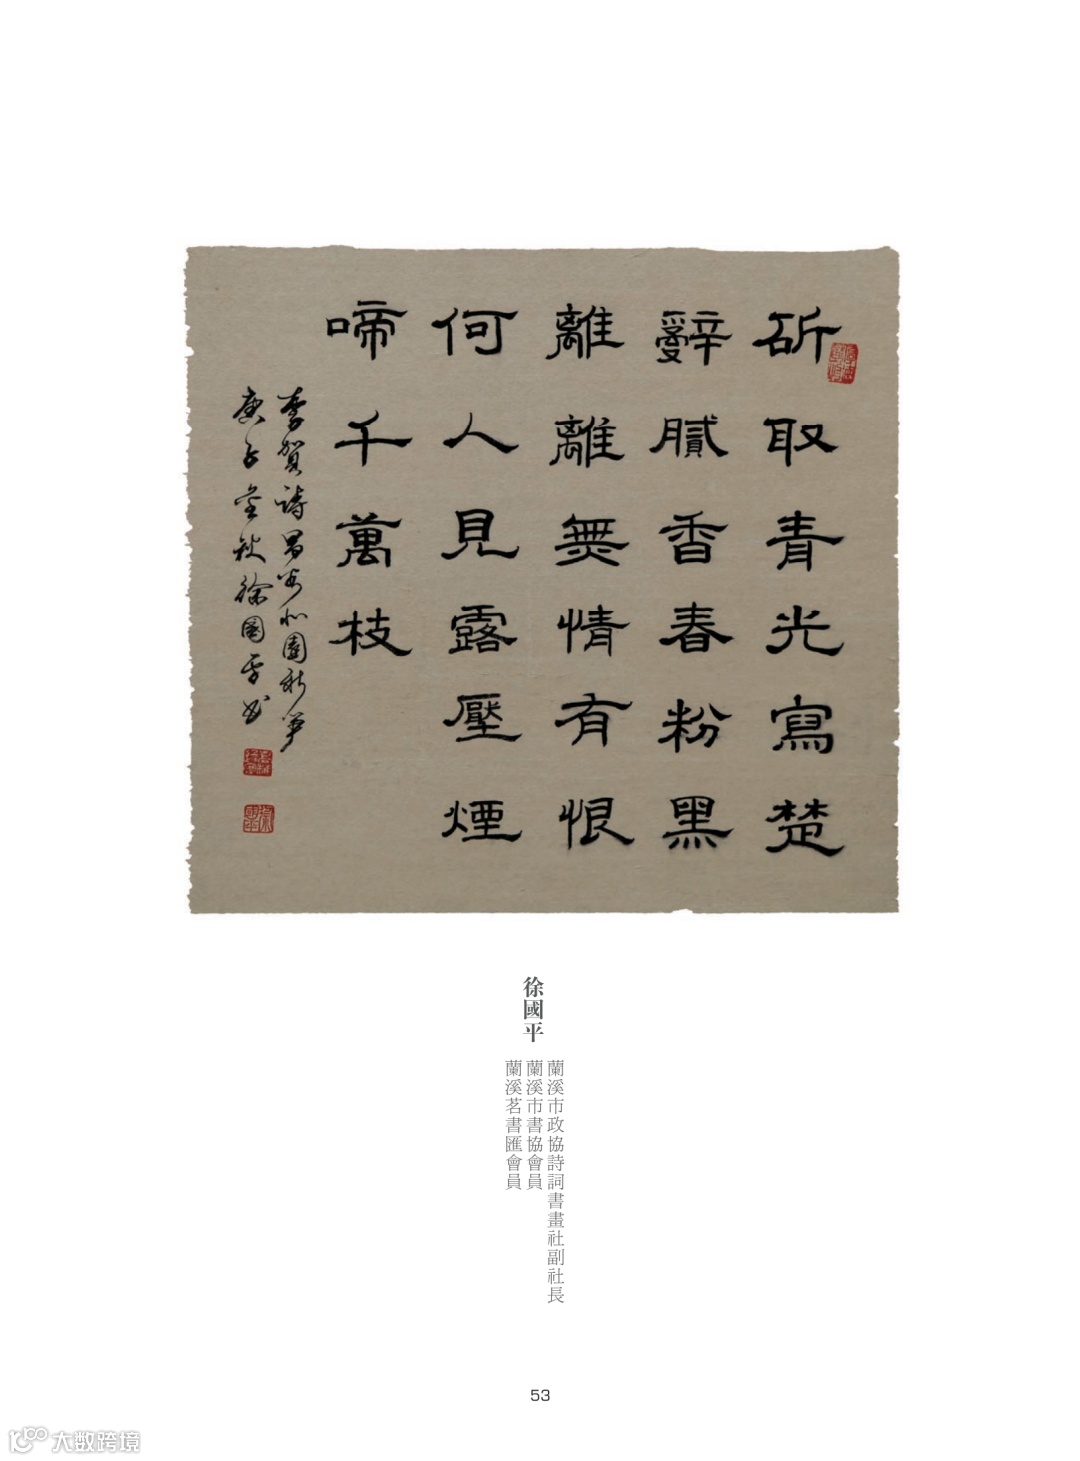 斫取青光寫楚
辭膩香春粉黑
離離無情有恨
何人見露壓煙
啼千萬枝
李賀詩昌谷北園新筍
庚子金秋徐國平書
徐國平
蘭溪市政協詩詞書畫社副社長
蘭溪市書協會員
蘭溪茗書匯會員
53
大数跨境